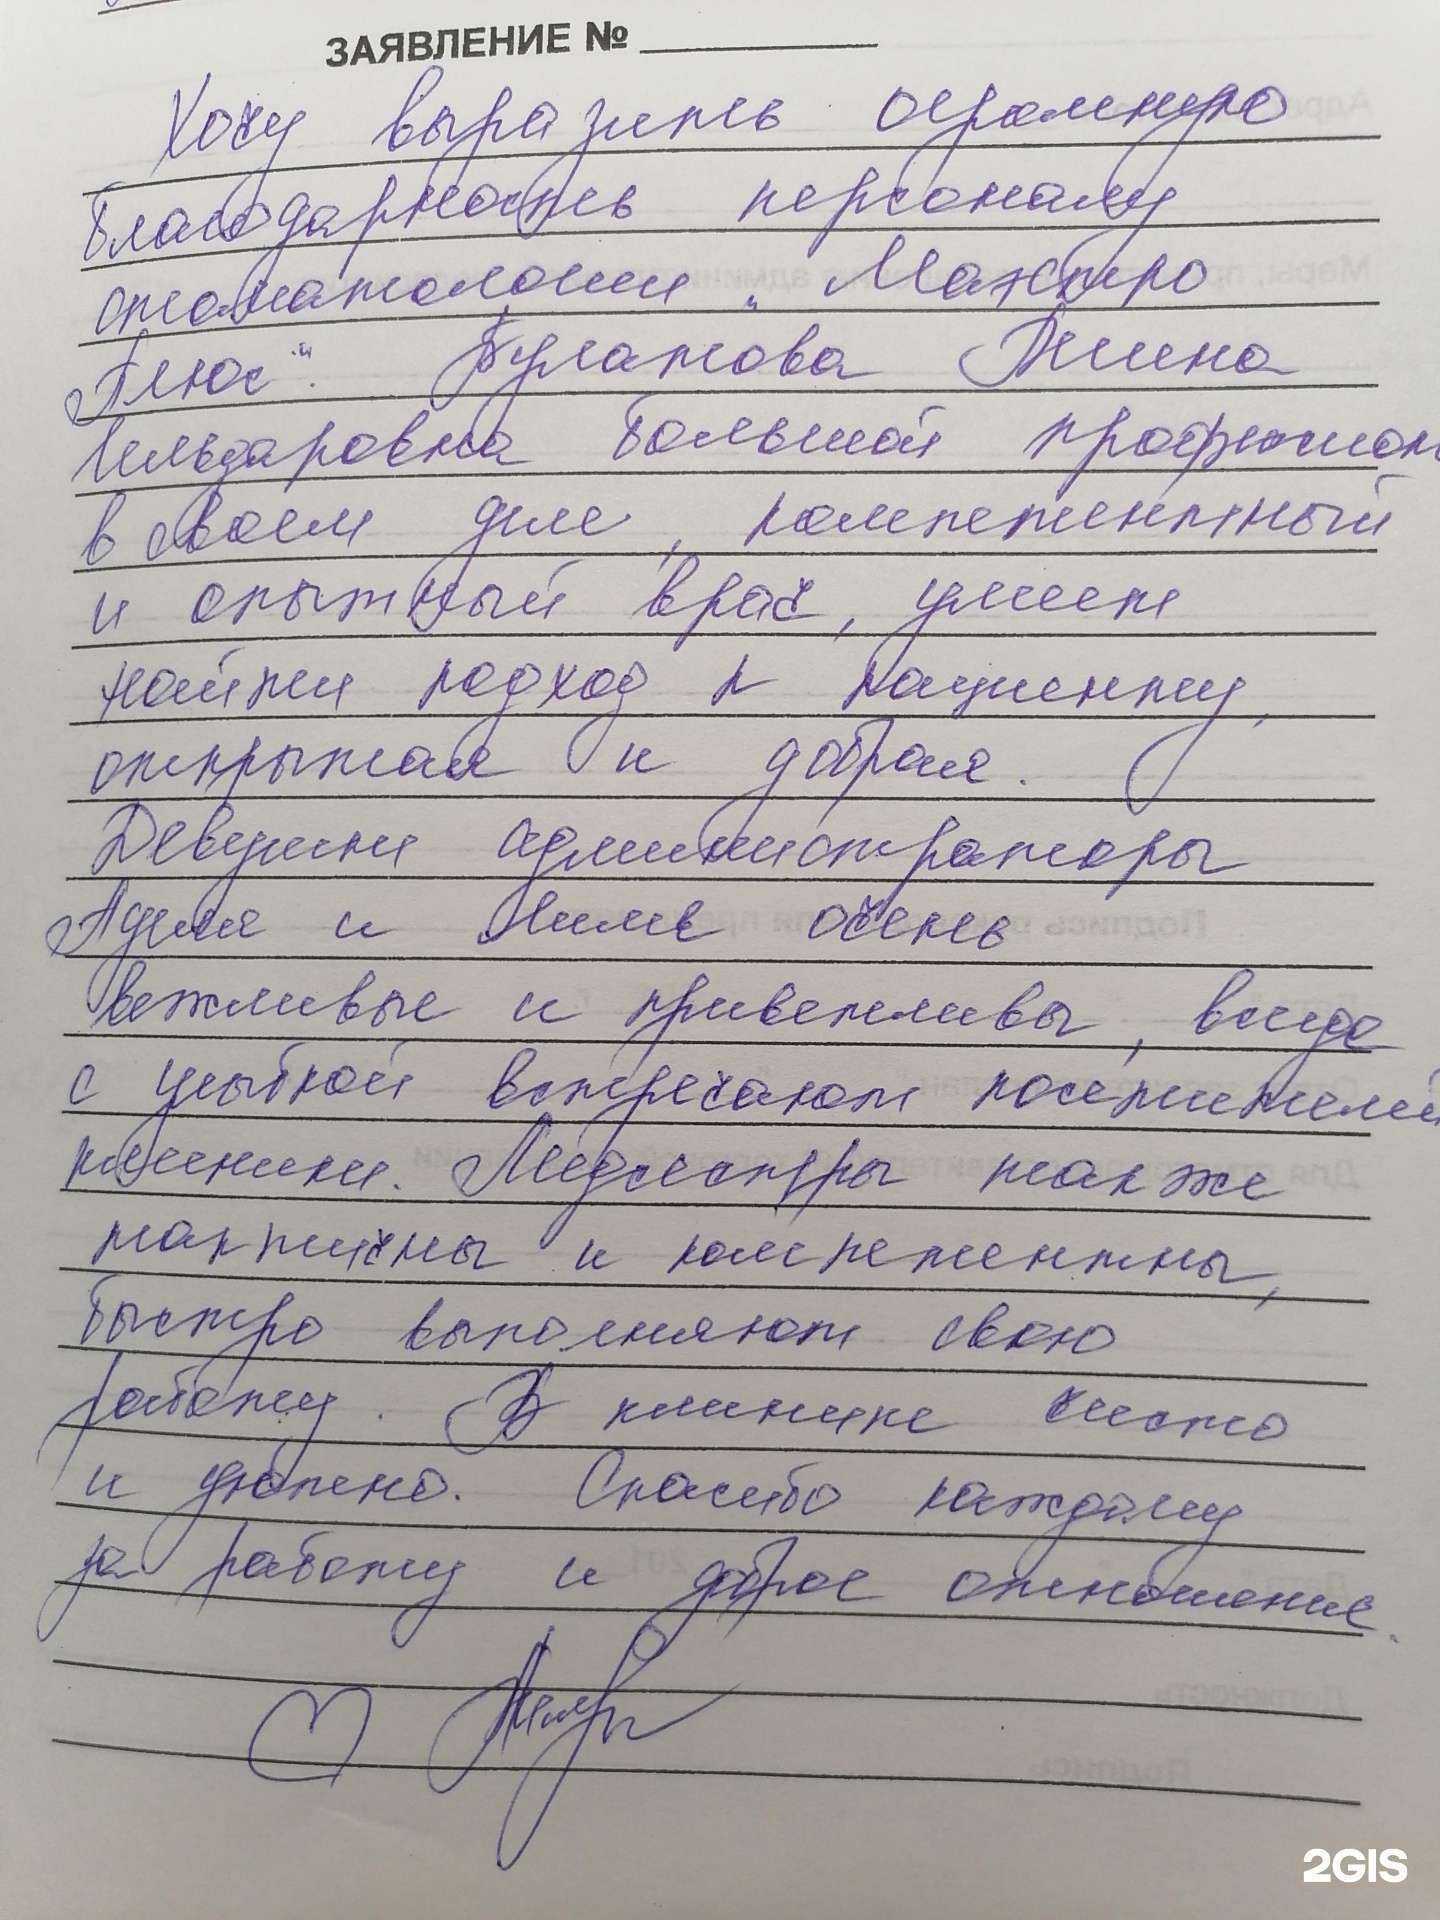 ЗАЯВЛЕНИЕ № 
Хочу выразить огромную
благодарность персоналу
стоматологии „Маэстро
Плюс". Булатова Дина
Ильдаровна большой професион
в своем деле, компетентный
и опытный врач, умеет
найти подход к пациенту,
открытая и добрая.
Девушки администраторы
Аделя и очень
вежливые и приветливы, всегда
с улыбкой встречают посетителей
клиники. Медсестры также
тактичны и компетентны,
быстро выполняют свою
работу. В клинике чисто
и уютно. Спасибо каждому
за работу и доброе отношение.
2GIS